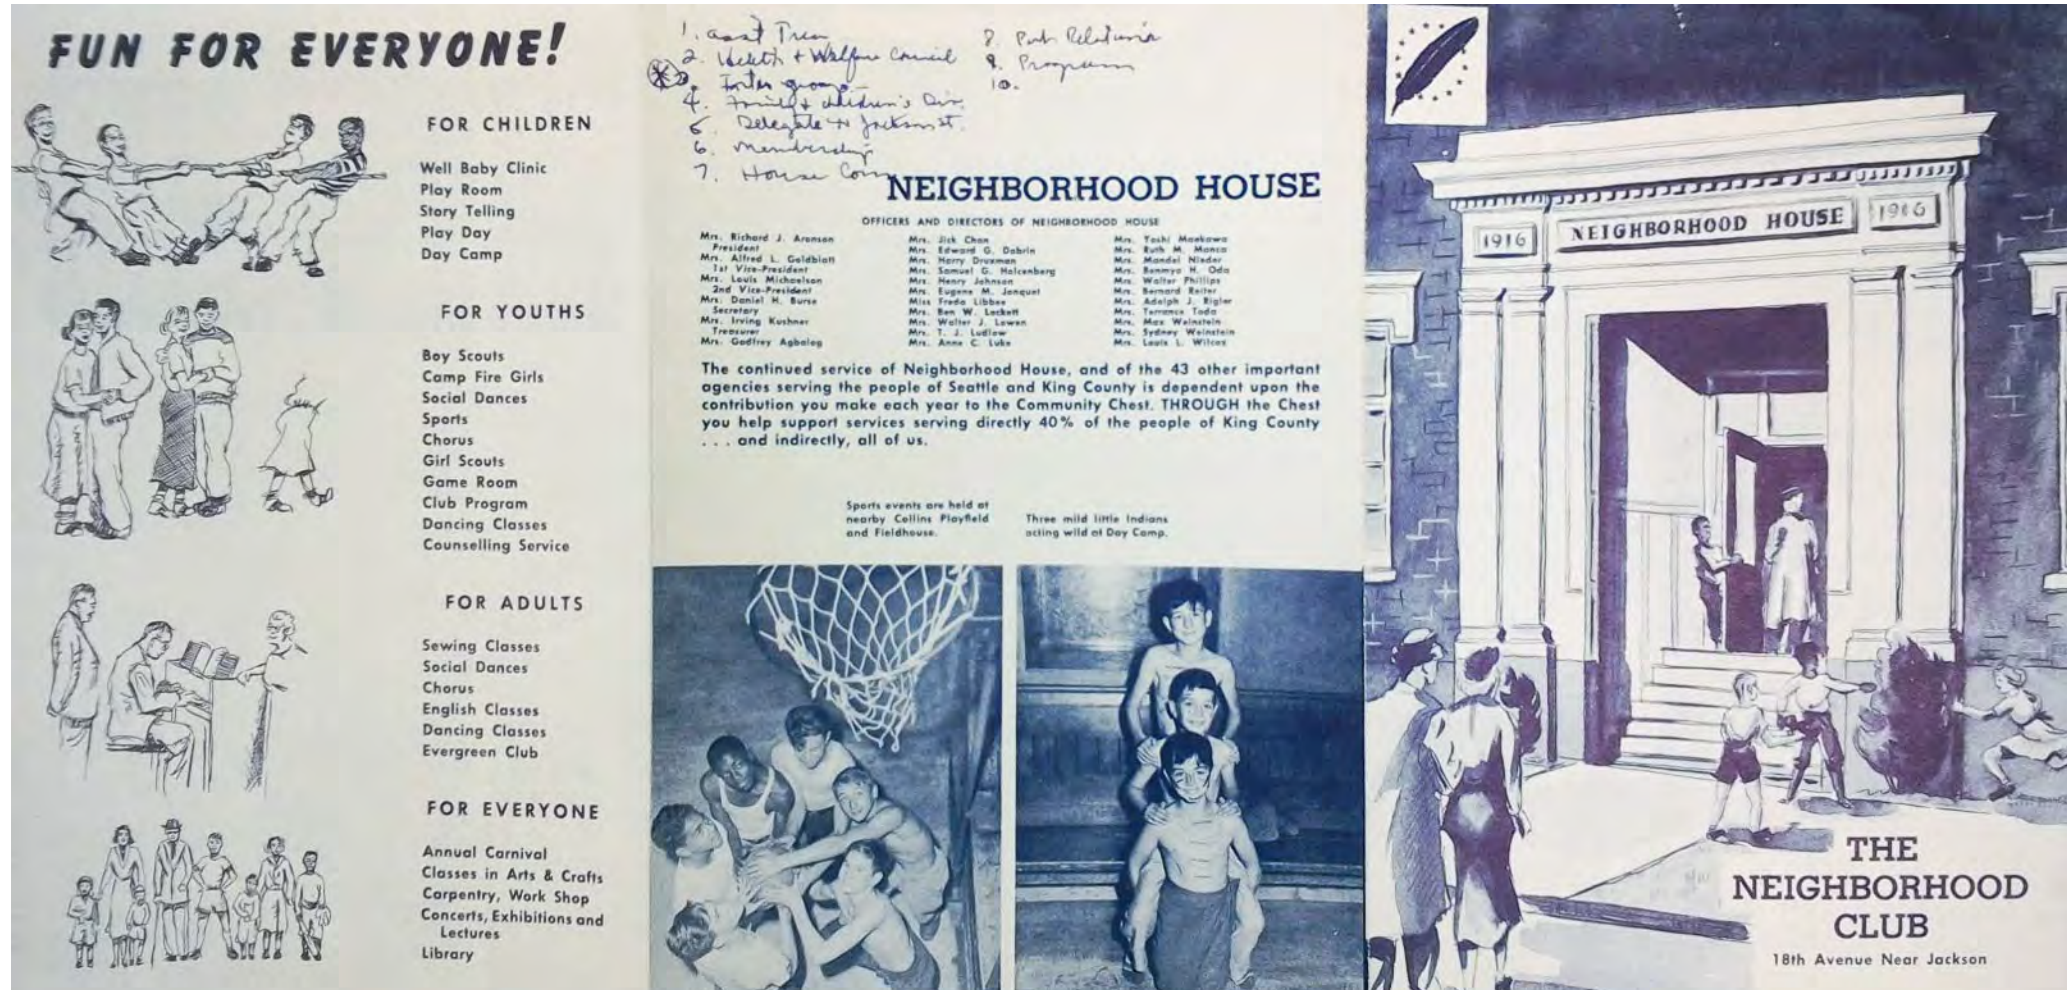 FUN FOR EVERYONE!
FOR CHILDREN
Well Baby Clinic
Play Room
Story Telling
Play Day
Day Camp
FOR YOUTHS
Boy Scouts
Camp Fire Girls
Social Dances
Sports
Chorus
Girl Scouts
Game Room
Club Program
Dancing Classes
Counselling Service
FOR ADULTS
Sewing Classes
Social Dances
Chorus
English Classes
Dancing Classes
Evergreen Club
FOR EVERYONE
Annual Carnival
Classes in Arts & Crafts
Carpentry, Work Shop
Concerts, Exhibitions and
Lectures
Library
1. asst Treas
2. Health & Welfare Council
3. groups
4. Family & children's Div.
5. Delegate to Jackson st.
6. Membership
7. House Comm
8. Pub Relations
9. Program
10.
NEIGHBORHOOD HOUSE
OFFICERS AND DIRECTORS OF NEIGHBORHOOD HOUSE
Mrs. Richard J. Aronson
President
Mrs. Alfred L. Goldblatt
1st Vice-President
Mrs. Louis Michaelson
2nd Vice-President
Mrs. Daniel H. Burse
Secretary
Mrs. Irving Kushner
Treasurer
Mrs. Godfrey Agbalog
Mrs. Jick Chan
Mrs. Edward G. Dobrin
Mrs. Harry Druxman
Mrs. Samuel G. Holcenberg
Mrs. Henry Johnson
Mrs. Eugene M. Jonquet
Miss Freda Libbee
Mrs. Ben W. Lockett
Mrs. Walter J. Lowen
Mrs. T. J. Ludlow
Mrs. Anne C. Luke
Mrs. Toshi Maekawa
Mrs. Ruth M. Manca
Mrs. Mandel Nieder
Mrs. Benmyo H. Oda
Mrs. Walter Phillips
Mrs. Bernard Reiter
Mrs. Adolph J. Rigler
Mrs. Terrance Toda
Mrs. Max Weinstein
Mrs. Sydney Weinstein
Mrs. Louis L. Wilcox
The continued service of Neighborhood House, and of the 43 other important
agencies serving the people of Seattle and King County is dependent upon the
contribution you make each year to the Community Chest. THROUGH the Chest
you help support services serving directly 40% of the people of King County
. . . and indirectly, all of us.
Sports events are held at
nearby Collins Playfield
and Fieldhouse.
Three mild little Indians
acting wild at Day Camp.
1916
NEIGHBORHOOD HOUSE
1916
THE
NEIGHBORHOOD
CLUB
18th Avenue Near Jackson